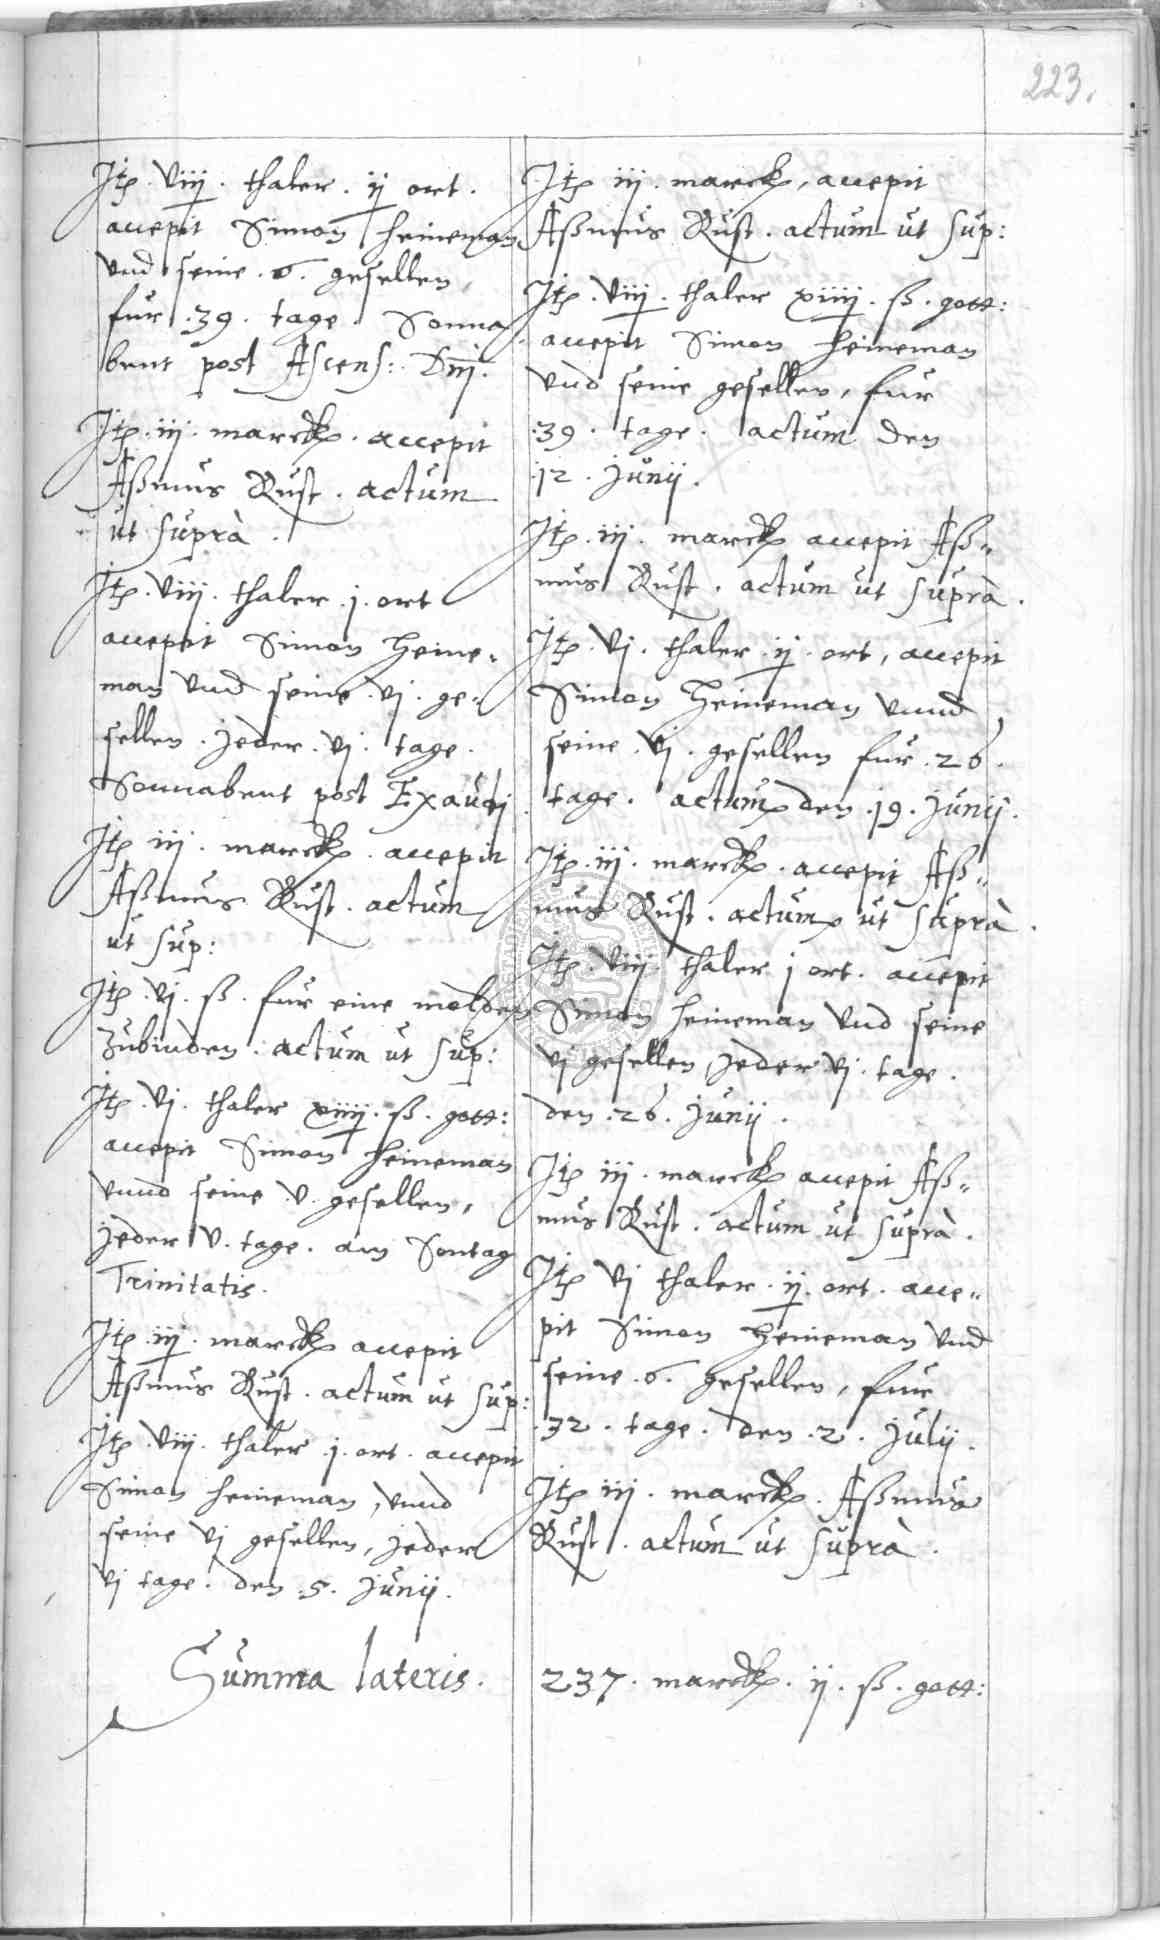 223.
Itē. viij. thaler. ij ort.
accepit Simon Heineman
vnd seine. 6. gesellen,
fur. 39. tage. Sonna
bent post Ascens: Dnj.
Itē. iij. marck. accepit
Aßmus Rust. actum
ut suprà.
Itē. viij. thaler. j. ort
accepit Simon Heine-
man vnd seine. vj. ge-
sellen. jeder. vj. tage.
Sonnabent post Exaudj.
Itē iij. marck. accepit
Aßmus Rust. actum
ut sup:
Itē. vj. ß. fur eine molden
Zubinden. actum ut sup:
Itē. vj. thaler xiiij. ß. gott:
accepit Simon Heineman
vnnd seine v. gesellen,
jeder v. tage. am Sontag
Trinitatis.
Itē. iij. marck accepit
Aßmus Rust. actum ut sup:
Itē. viij. thaler. j. ort. accepit
Simon Heineman, vnnd
seine vj gesellen, jeder
vj tage. den. 5. Junij.
Itē iij. marck, accepit
Aßmus Rust. actum ut sup:
Itē. viij. thaler xiiij. ß. gott:
accepit Simon Heineman
vnd seine gesellen, fur
39. tage. actum den
12. Junij.
Itē. iij. marck accepit Aß-
mus Rust. actum ut suprà.
Itē. vj. thaler. ij. ort, accepit
Simon Heineman vnnd
seine. vj. gesellen fur. 26.
tage. actum den. 19. Junij.
Itē. iij. marck. accepit Aß-
mus Rust. actum ut suprà.
Itē. viij. thaler j ort. accepit
Simon Heineman vnd seine
vj gesellen, jeder vj. tage.
den. 26. Junij.
Itē iij. marck accepit Aß-
mus Rust. actum ut suprà.
Itē vj thaler. ij. ort. acce-
pit Simon Heineman vnd
seine. 6. gesellen, fur
32. tage. den. 2. Julij.
Itē iij. marck. Aßmus
Rust. actum ut suprà.
Summa lateris. 237. marck. ij. ß. gott: